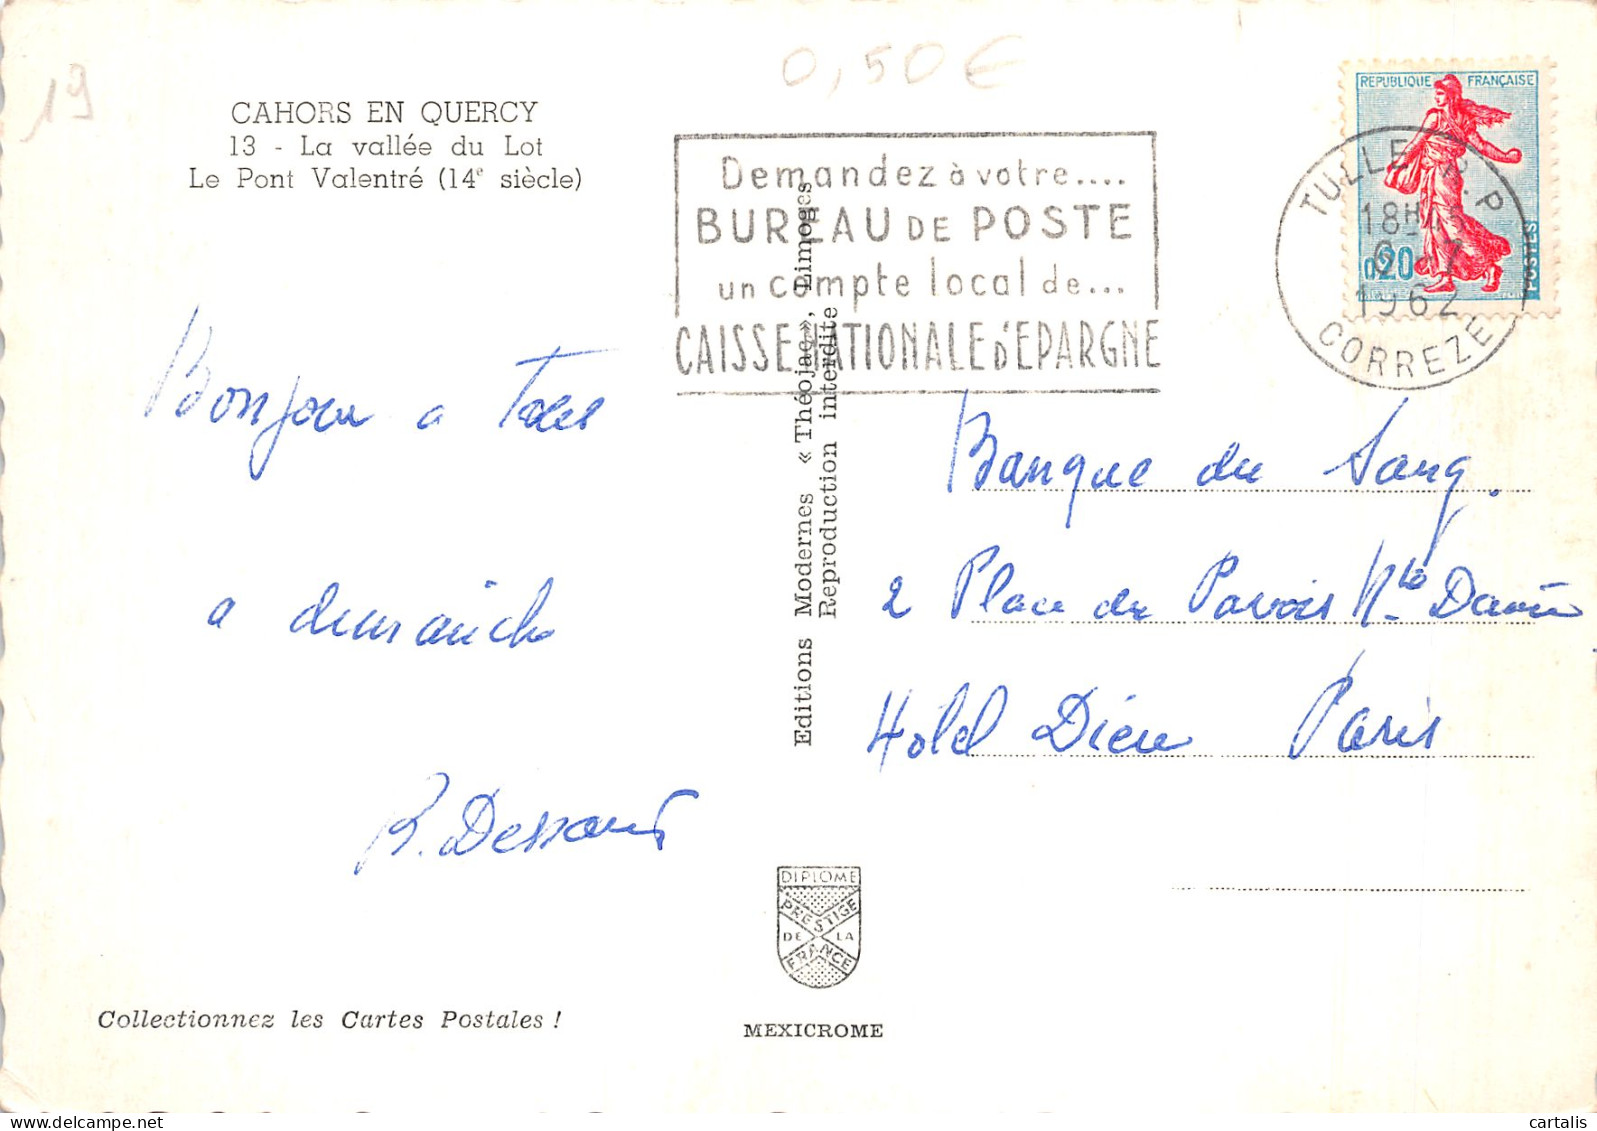 19
0,50€
CAHORS EN QUERCY
13 - La vallée du Lot
Le Pont Valentré (14e siècle)
Demandez à votre....
BUREAU DE POSTE
un compte local de...
CAISSE NATIONALE D'EPARGNE
REPUBLIQUE FRANÇAISE
0,20
POSTES
TULLE R.P
18H
1962
CORREZE
Bonjour a Tous
a dimanche
R. Dessaus
Editions Modernes « Théojac », Limoges
Reproduction interdite
Banque du Sang.
2 Place du Parvois Nte Dame
Hotel Dieu Paris
DIPLOME
PRESTIGE
DE LA
FRANCE
Collectionnez les Cartes Postales !
MEXICROME
cartalis